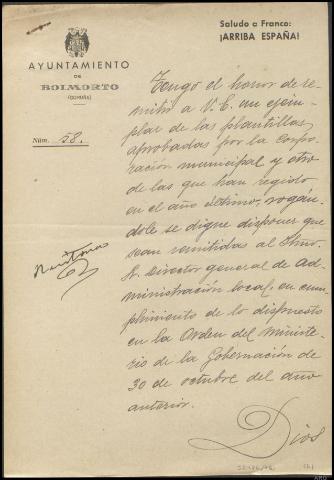 Saludo a Franco:
¡ARRIBA ESPAÑA!
AYUNTAMIENTO
DE
BOIMORTO
(CORUÑA)
Núm. 58.
Tengo el honor de re-
mitir a V. E. un ejem-
plar de las plantillas
aprobadas por la Corpo-
ración municipal y otro
de las que han regido
en el año último, rogán-
dole se digne disponer que
sean remitidas al Iltmo.
Sr. Director general de Ad-
ministración local, en cum-
plimiento de lo dispuesto
en la Orden del Ministe-
rio de la Gobernación de
30 de octubre del año
anterior.
Dios